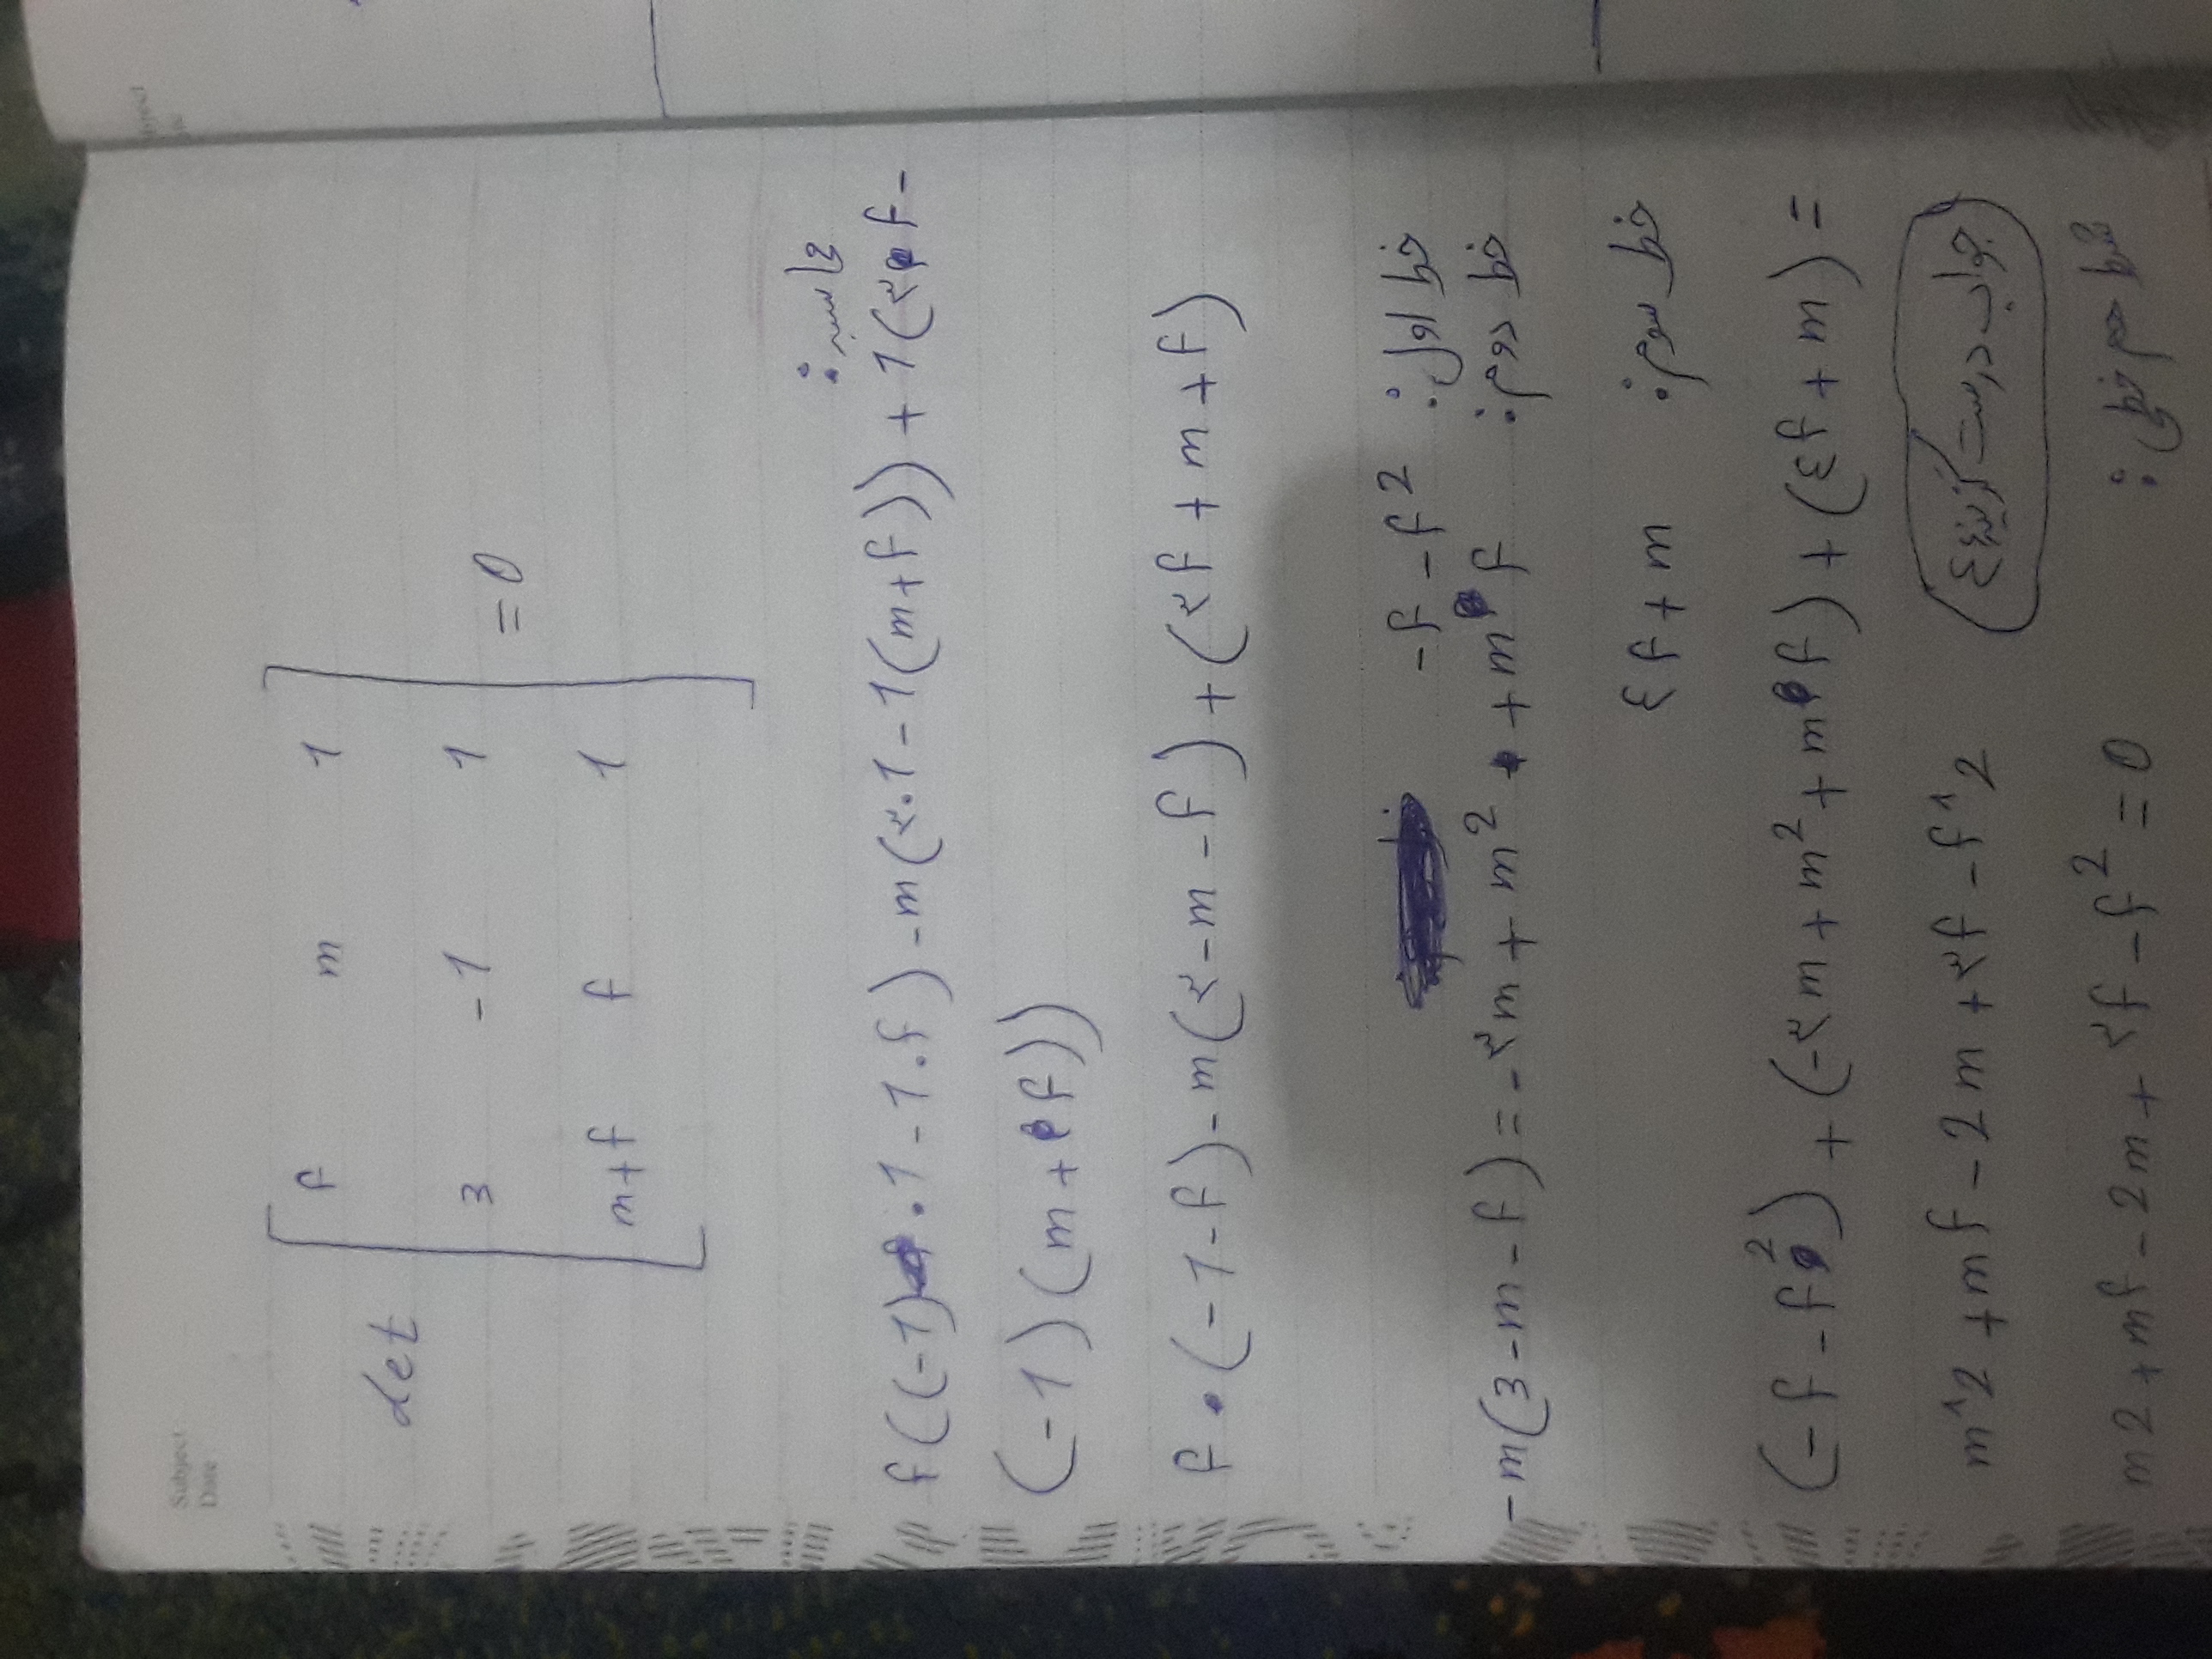 Subject
Date
det [ f m 1
3 -1 1
m+f f 1 ] = 0
محاسبه:
f((-1).1-1.f)-m(۳.1-1(m+f))+1(۳f-
(-1)(m+f))
f.(-1-f)-m(۳-m-f)+(۳f+m+f)
خط اول: -f-f²
خط دوم: -m(3-m-f)=-۳m+m²+mf
خط سوم: ٤f+m
(-f-f²)+(-۳m+m²+mf)+(٤f+m)=
m^2+mf-2m+۳f-f^2
جواب درست گزینه ٤
شرط هم خطی:
m2+mf-2m+۳f-f²=0